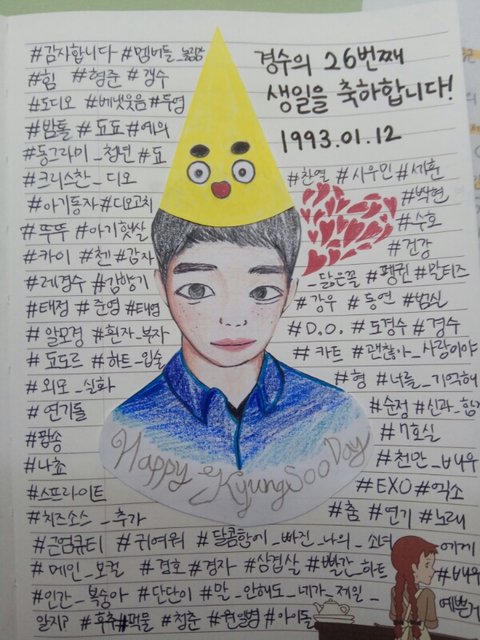 경수의 26번째
생일을 축하합니다!
1993.01.12
#감사합니다 #멤버들
#힘 #형준 #경수
#도디오 #베냇웃음 #두영
#밤톨 #됴됴 #예의
#동그라미_청년 #됴
#크리스찬_디오
#아기동자 #디오고치
#뚜뚜 #아기햇쌀
#카이 #첸 #감자
#레경수 #강항기
#태정 #준영 #태영
#알모경 #환자_복자
#됴도르 #하트_입술
#외모_실화
#연기돌
#팝송
#나쵸
#스프라이트
#치즈소스_추가
#찬열 #시우민 #세훈
#백현
#수호
#건강
_닮은꼴 #펭귄 #말티즈
#강우 #동연 #범실
#D.O. #도경수 #경수
#카트 #괜찮아_사랑이야
#형 #너를_기억해
#순정 #신과_함께
#7호실
#천만_배우
#EXO #엑소
#춤 #연기 #노래
Happy KyungSoo Day
#근엄큐티 #귀여워 #달콤함에_빠진_나의_소녀
에게
#메인_보컬 #경호 #경자 #삼겹살 #빨간_하트
#배우
#인간_복숭아 #단단이 #말_안해도_네가_제일_
예쁜거
알지? #후추 #먹물 #청춘 #원앨범 #아이돌